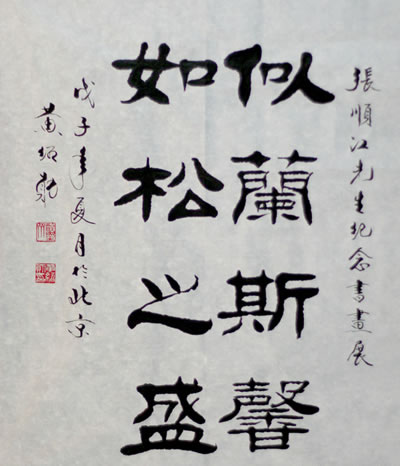 張順江先生紀念書畫展
似蘭斯馨
如松之盛
戊子年夏月於北京